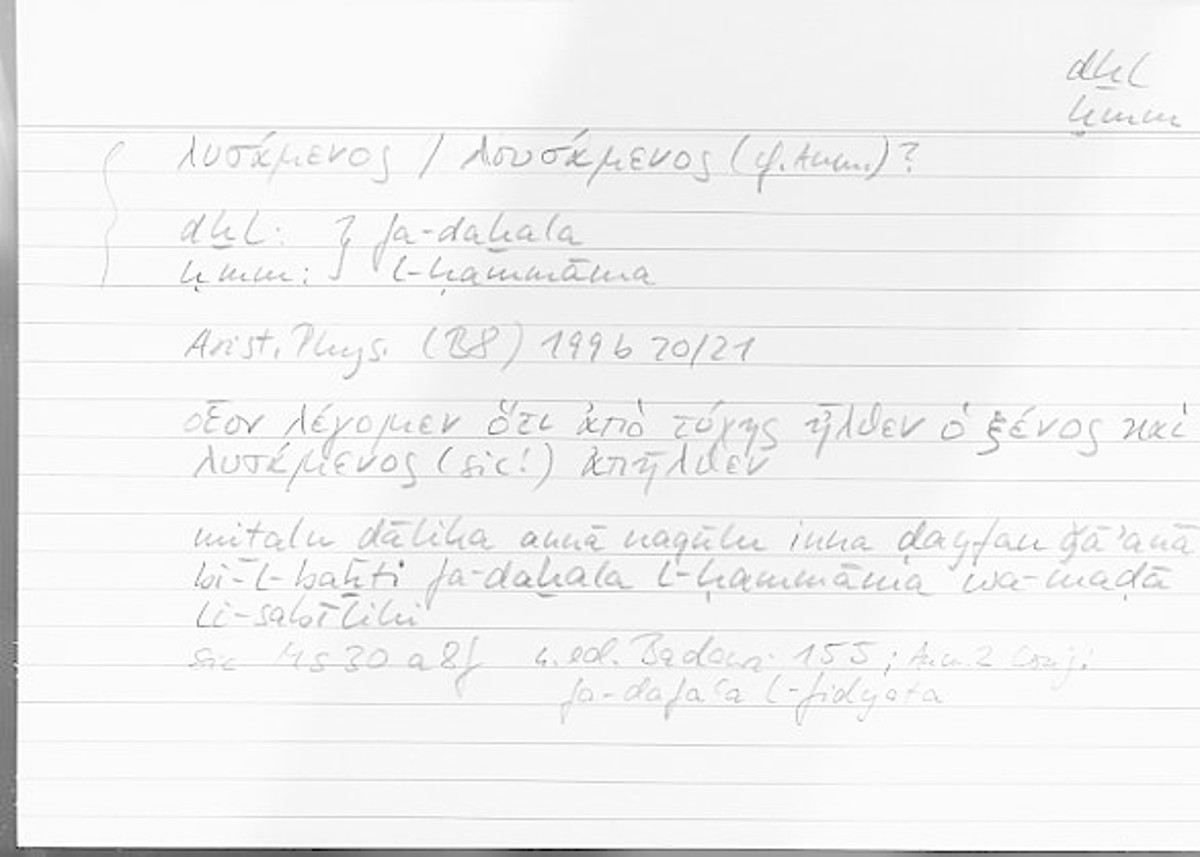 dḫl
ḥmm
λυσάμενος / λουσάμενος (cf. Anm.)?
dḫl: } fa-daḫala
ḥmm: } l-ḥammāma
Arist. Phys. (B8) 199b 20/21
οἷον λέγομεν ὅτι ἀπὸ τύχης ἦλθεν ὁ ξένος καὶ
λυσάμενος (sic!) ἀπῆλθεν
mitalu dālika annā naqūlu inna ḍayfan ǧā'anā
bi-l-baḫti fa-daḫala l-ḥammāma wa-maḍā
li-sabīlihi
sic Ms 30 a 8f u. ed. Badawi 155; Anm. 2 Conj.:
fa-dafaʿa l-fidyata